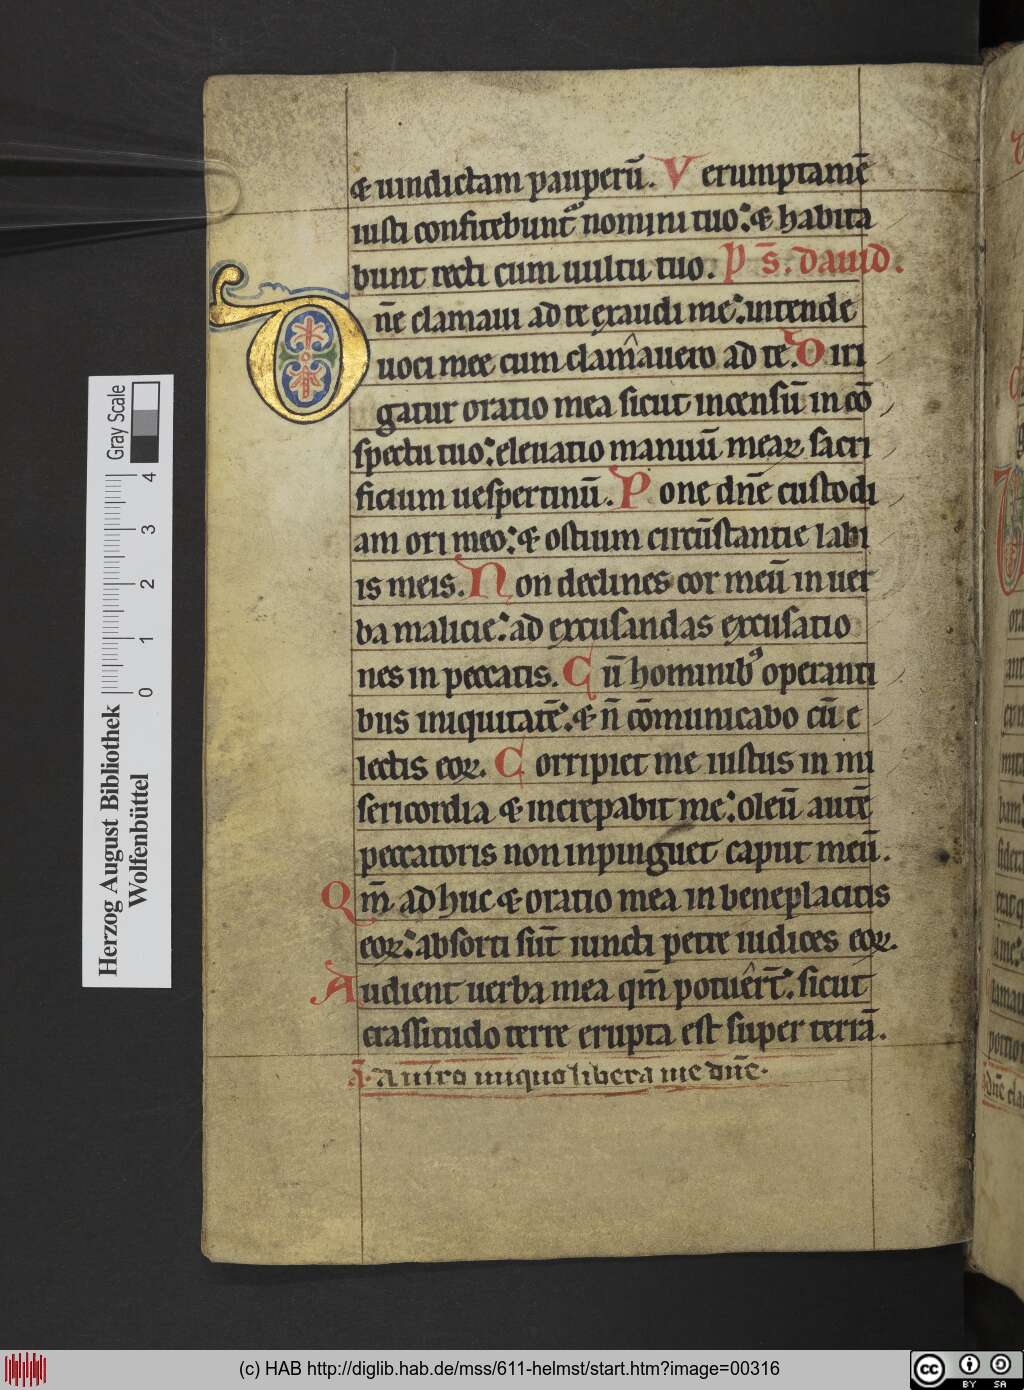 & uindictam pauperū. Verumptamē
iusti confitebunt᷑ nomini tuo: & habita
bunt recti cum uultu tuo. P s̄. dauid.
Dn̄e clamaui ad te exaudi me: intende
uoci mee cum clam̂auero ad te. Diri
gatur oratio mea sicut incensū in cō
spectu tuo: eleuatio manuū meaꝝ sacri
ficium uespertinū. Pone dn̄e custodi
am ori meo: & ostium circūstantie labi
is meis. Non declines cor meū in uer
ba malicie: ad excusandas excusatio
nes in peccatis. Cū hominibꝰ operanti
bus iniquitatē: & n̄ cōmunicabo cū e
lectis eoꝝ. Corripiet me iustus in mi
sericordia & increpabit me: oleū autē
peccatoris non inpinguet caput meū.
Qm̄ adhuc & oratio mea in beneplacitis
eoꝝ: absorti sūt iuncti petre iudices eoꝝ.
Audient uerba mea qm̄ potuêrt̄: sicut
crassitudo terre erupta est super terrā.
ā. A uiro iniquo libera me dn̄e.
Herzog August Bibliothek
Wolfenbüttel
0 1 2 3 4
Gray Scale
(c) HAB http://diglib.hab.de/mss/611-helmst/start.htm?image=00316
cc BY SA